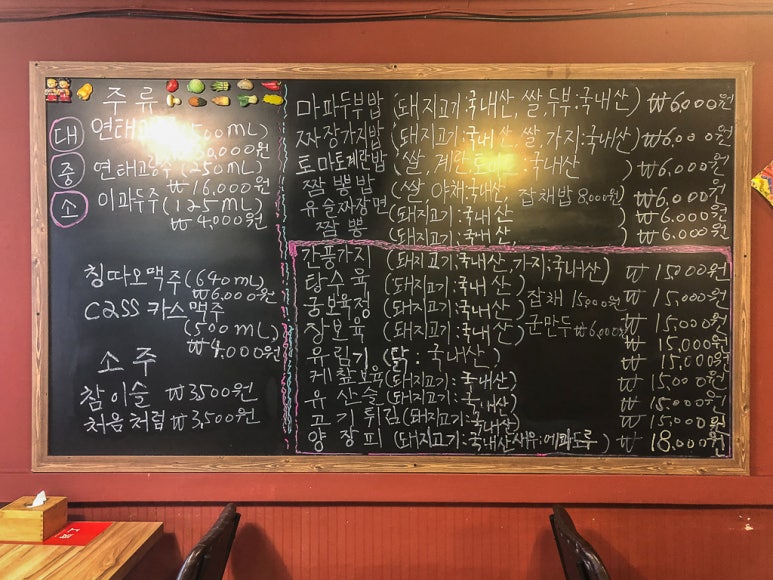 주류
대 연태고량주(500mL)
₩30,000원
중 연태고량주(250mL)
₩16,000원
소 이과두주(125mL)
₩4,000원
칭따오맥주(640mL)
₩6,000원
CaSS 카스맥주
(500mL)
₩4,000원
소주
참이슬 ₩3500원
처음처럼 ₩3,500원
마파두부밥 (돼지고기:국내산, 쌀,두부:국내산) ₩6,000원
짜장가지밥 (돼지고기:국내산,쌀,가지:국내산) ₩6,000원
토마토계란밥 (쌀,계란,토마토:국내산) ₩6,000원
짬뽕밥 (쌀 야채:국내산, 잡채밥 8,000원) ₩6,000원
유슬짜장면 (돼지고기:국내산) ₩6,000원
짬뽕 (돼지고기:국내산,) ₩6,000원
간풍가지 (돼지고기:국내산,가지:국내산) ₩15,000원
탕수육 (돼지고기:국내산) 잡채 15,000원 ₩15,000원
궁보육정 (돼지고기:국내산) ₩15,000원
장보육 (돼지고기:국내산) 군만두 ₩6,000원 ₩15,000원
유림기 (닭:국내산) ₩15,000원
케찹보육 (돼지고기:국내산) ₩15,000원
유산슬 (돼지고기:국내산) ₩15,000원
고기튀김 (돼지고기:국내산) ₩15,000원
양장피 (돼지고기:국내산새우:에콰도루) ₩18,000원